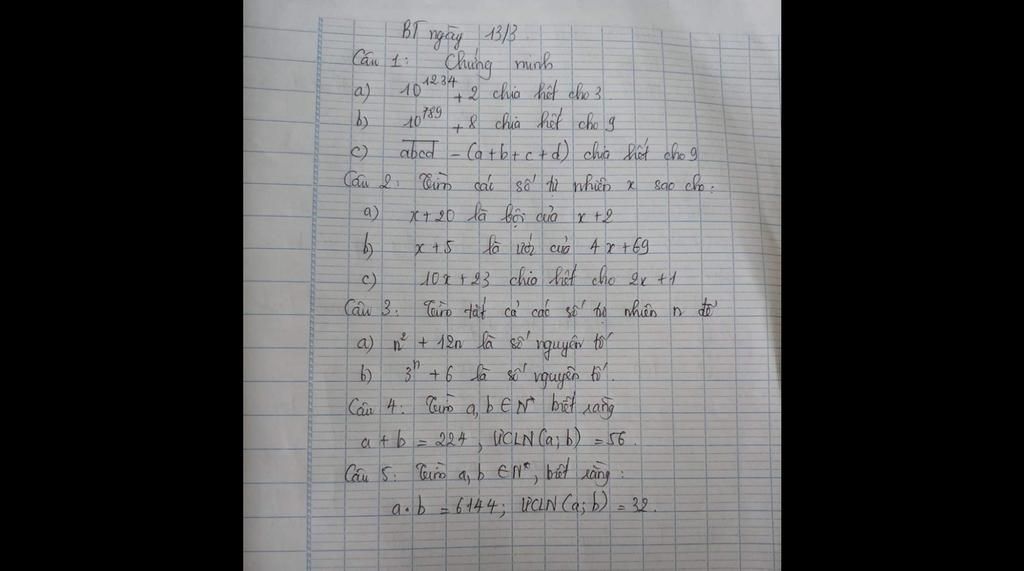 BT ngày 13/3
Câu 1: Chứng minh
a) 10^1234 + 2 chia hết cho 3
b) 10^789 + 8 chia hết cho 9
c) \overline{abcd} - (a+b+c+d) chia hết cho 9
Câu 2: Tìm các số tự nhiên x sao cho:
a) x+20 là bội của x+2
b) x+5 là ước của 4x+69
c) 10x+23 chia hết cho 2x+1
Câu 3: Tìm tất cả các số tự nhiên n để
a) n² + 12n là số nguyên tố
b) 3^n + 6 là số nguyên tố.
Câu 4: Tìm a, b ∈ N* biết rằng
a + b = 224, ƯCLN(a;b) = 56.
Câu 5: Tìm a, b ∈ N*, biết rằng:
a.b = 6144; ƯCLN(a;b) = 32.